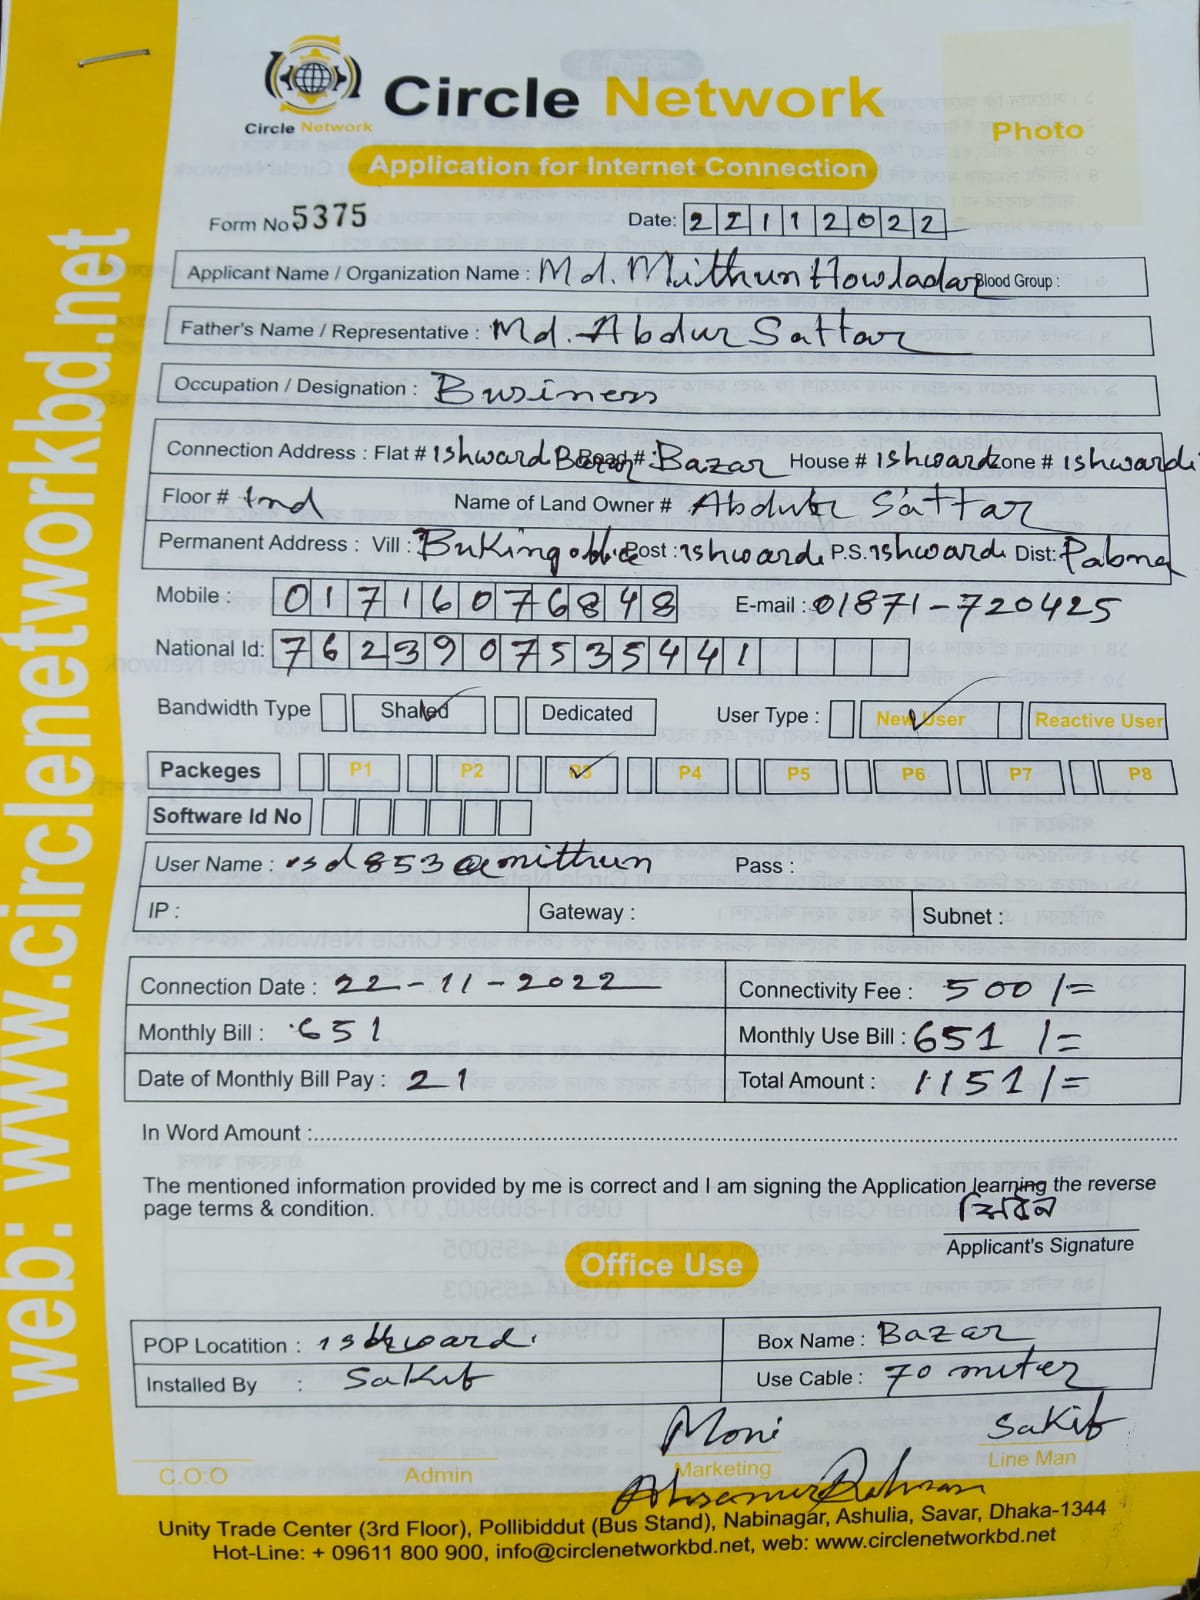 Circle Network
Circle Network
Photo
Application for Internet Connection
Form No 5375 Date: 22112022
Applicant Name / Organization Name : Md. Mithun Howladar Blood Group :
Father's Name / Representative : Md. Abdur Sattar
Occupation / Designation : Business
Connection Address : Flat # Ishward Bazar Road # : Bazar House # Ishward Zone # Ishwardi
Floor # Name of Land Owner # Abdur Sattar
Permanent Address : Vill : Post : Ishwardi P.S. Ishwardi Dist: Pabna
Mobile : 01716076848 E-mail : 01871-720425
National Id: 7623907535441
Bandwidth Type Shared Dedicated User Type : New User Reactive User
Packeges P1 P2 P3 P4 P5 P6 P7 P8
Software Id No
User Name : rsd853@mithun Pass :
IP : Gateway : Subnet :
Connection Date : 22-11-2022 Connectivity Fee : 500/=
Monthly Bill : 651 Monthly Use Bill : 651 /=
Date of Monthly Bill Pay : 21 Total Amount : 1151/=
In Word Amount :
The mentioned information provided by me is correct and I am signing the Application learning the reverse
page terms & condition.
Applicant's Signature
Office Use
POP Locatition : Ishwardi Box Name : Bazar
Installed By : Sakib Use Cable : 70 miter
Moni Sakib
C.O.O Admin Marketing Line Man
Unity Trade Center (3rd Floor), Pollibiddut (Bus Stand), Nabinagar, Ashulia, Savar, Dhaka-1344
Hot-Line: + 09611 800 900, info@circlenetworkbd.net, web: www.circlenetworkbd.net
web: www.circlenetworkbd.net